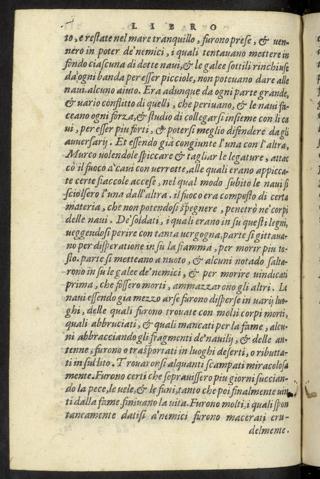 LIBRO
to, e restate nel mare tranquillo, furono prese, & ven-
nero in poter de' nemici, i quali tentauano mettere in
fondo ciascuna di dette naui, & le galee sottili rinchiuse
da ogni banda per esser picciole, non potcuano dare alle
naui alcuno aiuto. Era adunque da ogni parte grande,
& uario conflitto di quelli, che periuano, & le naui fa-
ceano ogni forza, & studio di collegarsi insieme con li ca
ui, per esser piu forti, & potersi meglio difendere da gli
auuersarij. Et essendo già congiunte l'una con l'altra,
Murco uolendole spiccare & tagliar le legature, attac
cò il fuoco a' cani con uerrotte, alle quali erano appicca-
te certe fiaccole accese, nel qual modo subito le naui si
sciolsero l'una dall'altra. il fuoco era composto di certa
materia, che non potendosi spegnere, penetrò ne' corpi
delle naui. De' soldati, i quali erano in su questi legni,
ueggendosi perire con tanta uergogna, parte si gittaua-
no per disperatione in su la fiamma, per morir piu to-
sto. parte si metteano a nuoto, & alcuni notado salta-
rono in su le galee de' nemici, & per morire uindicati
prima, che fossero morti, ammazzarono gli altri. Le
naui essendo gia mezzo arse furono disperse in uarij luo-
ghi, delle quali furono trouate con molti corpi morti,
quali abbruciati, & quali mancati per la fame, alcu-
ni abbracciando gli fragmenti de' nauilij, & delle an-
tenne, furono o trasportati in luoghi deserti, o ributta-
ti in sul lito. Trouaronsi alquanti scampati miracolosa
mente. Furono certi che soprauissero piu giorni succian-
do la pece, le uele, & le funi, tanto che poi finalmente uin
ti dalla fame finiuano la uita. Furono molti, i quali spon
taneamente datisi a' nemici furono macerati cru-
delmente.